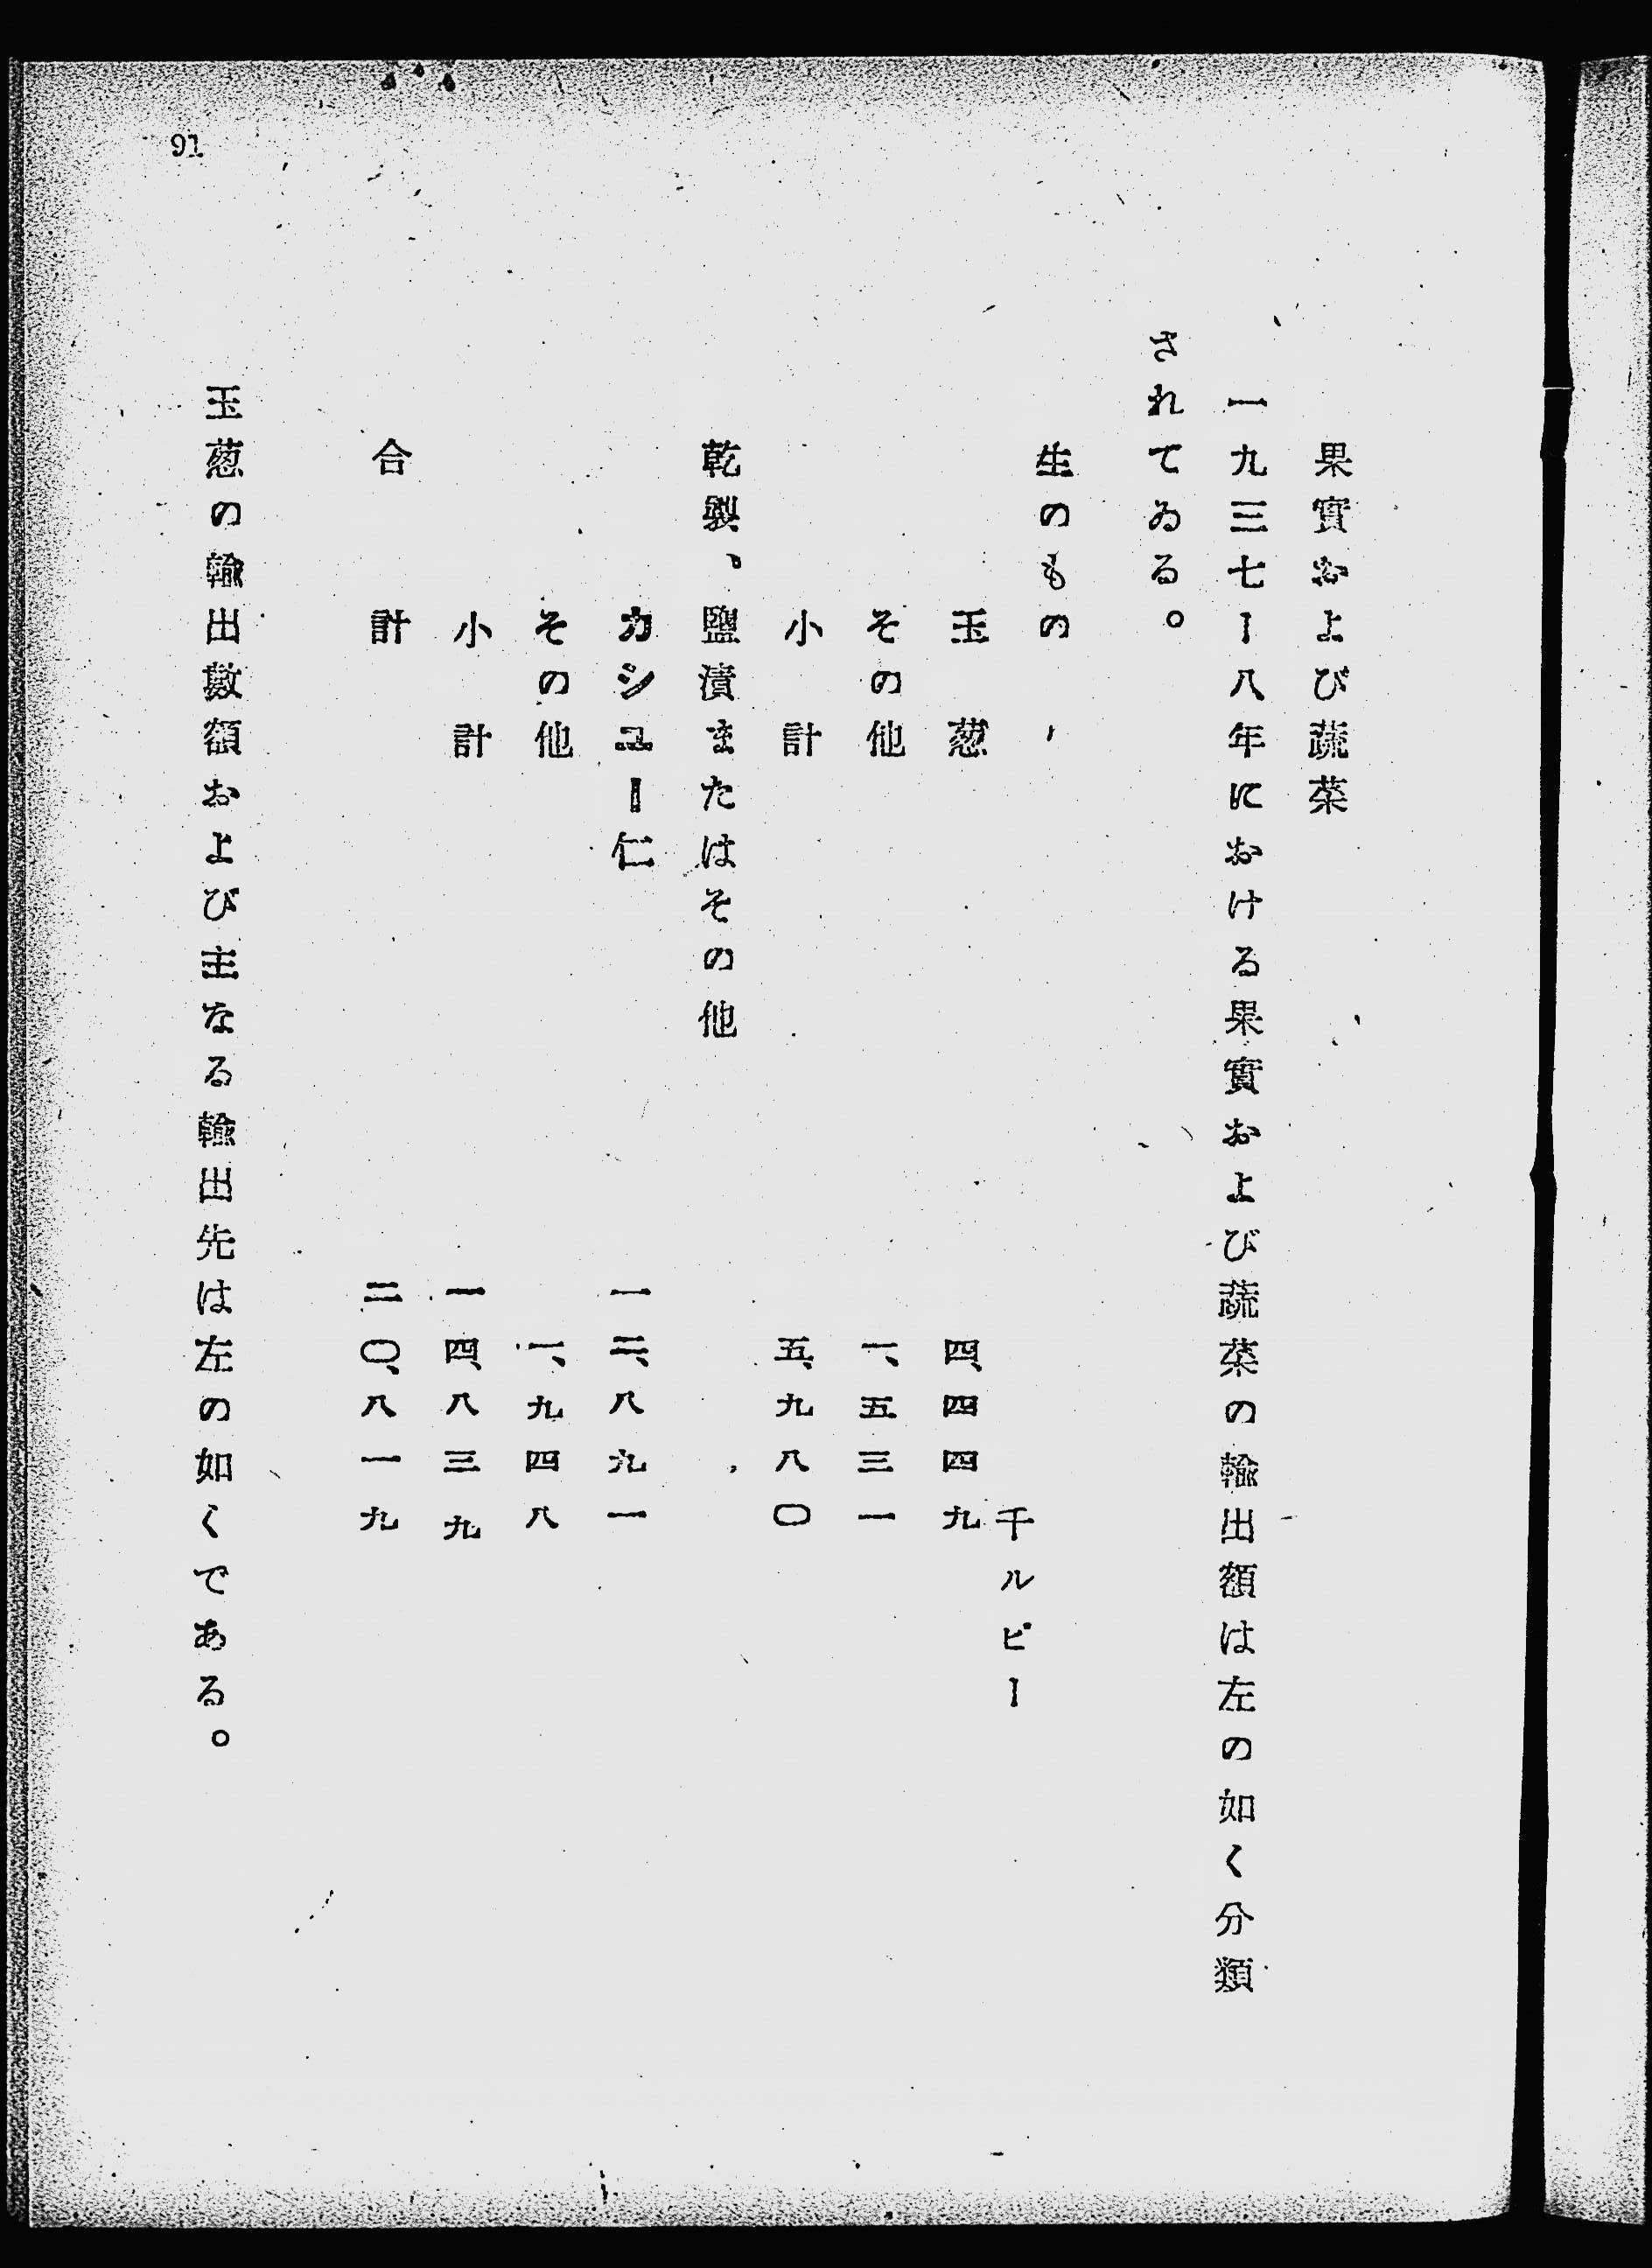 果實および蔬菜
一九三七ー八年における果實および蔬菜の輸出額は左の如く分類
されてゐる。
生のもの
千ルピー
玉葱 四、四四九
その他 一、五三一
小計 五、九八〇
乾製、鹽漬またはその他
カシユー仁 一二、八九一
その他 一、九四八
小計 一四、八三九
合計 二〇、八一九
玉葱の輸出數額および主なる輸出先は左の如くである。
91